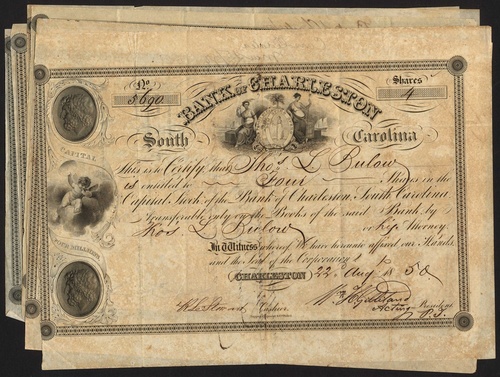 No
5690
Shares
4
BANK OF CHARLESTON
South Carolina
This is to Certify that Thos L Bulow
is entitled to Four Shares in the
Capital Stock of the Bank of Charleston, South Carolina
Transferable only on the Books of the said Bank by
Thos L Bulow or his Attorney.
In Witness whereof We have hereunto affixed our Hands
and the Seal of the Corporation
CHARLESTON 22 Aug 1850
Cashier
Acting President
CAPITAL
FOUR MILLIONS